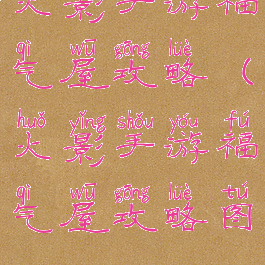 火影手游福
qì wū gōng lüè
气屋攻略（
huǒ yǐng shǒu yóu fú
火影手游福
qì wū gōng lüè tú
气屋攻略图